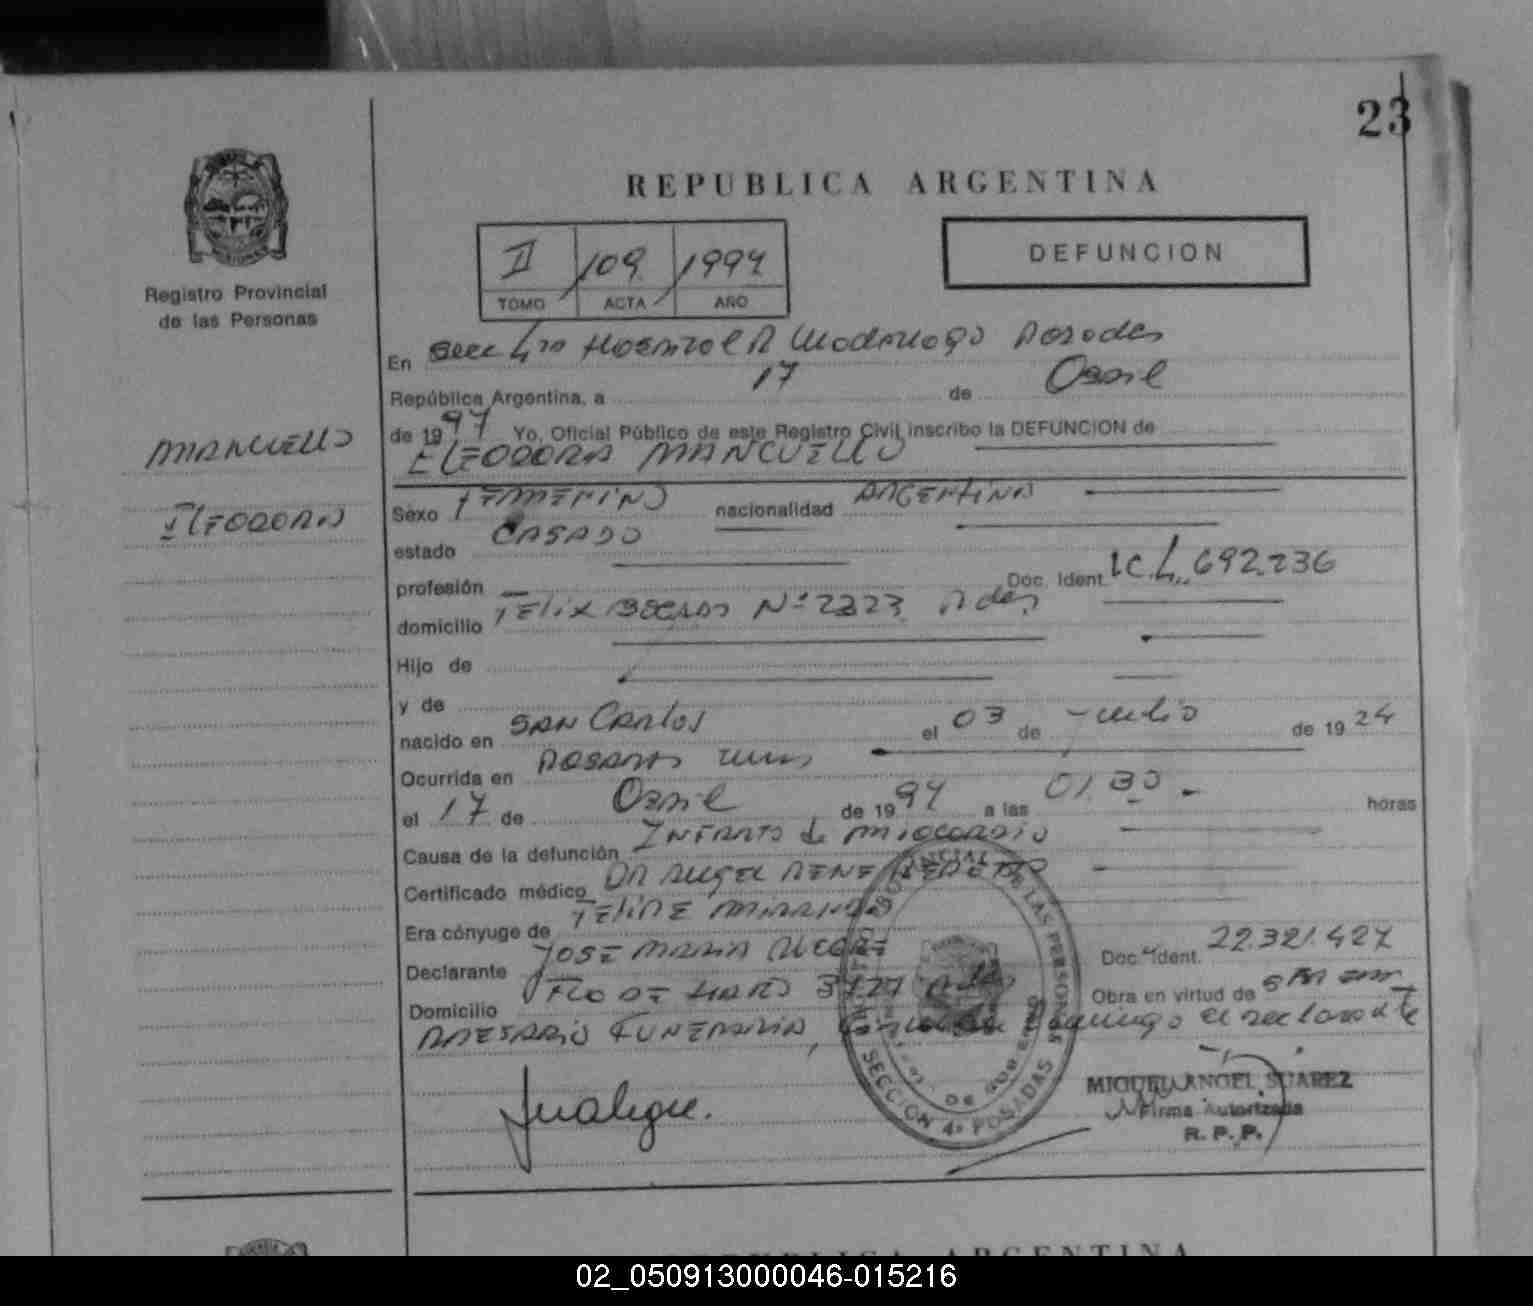 23
REPUBLICA ARGENTINA
II / 109 / 1994
TOMO ACTA AÑO
DEFUNCION
Registro Provincial
de las Personas
MANCUELLO
ELEODORA
En Secc 4ta Hospital R Madariaga Posadas
República Argentina, a 17 de Abril
de 1994 Yo, Oficial Público de este Registro Civil inscribo la DEFUNCION de
ELEODORA MANCUELLO
Sexo FEMENINO nacionalidad ARGENTINA
estado CASADO
profesión Doc. Ident. L.C. 4.692.236
domicilio FELIX N° 2323 Pdas
Hijo de
y de
nacido en SAN CARLOS el 03 de Julio de 1924
Ocurrida en POSADAS
el 17 de Abril de 1994 a las 01.30 horas
Causa de la defunción INFARTO de MIOCARDIO
Certificado médico DR ANGEL RENE
Era cónyuge de FELIPE MIRANDA
Declarante JOSE MARIA ALEGRE Doc. Ident. 22.321.427
Domicilio FCO DE HARO Pdas Obra en virtud de
FUNERARIA, el declarante
SECCION 4a POSADAS
MIGUEL ANGEL SUAREZ
Firma Autorizada
R. P. P.
REPUBLICA ARGENTINA
02_050913000046-015216